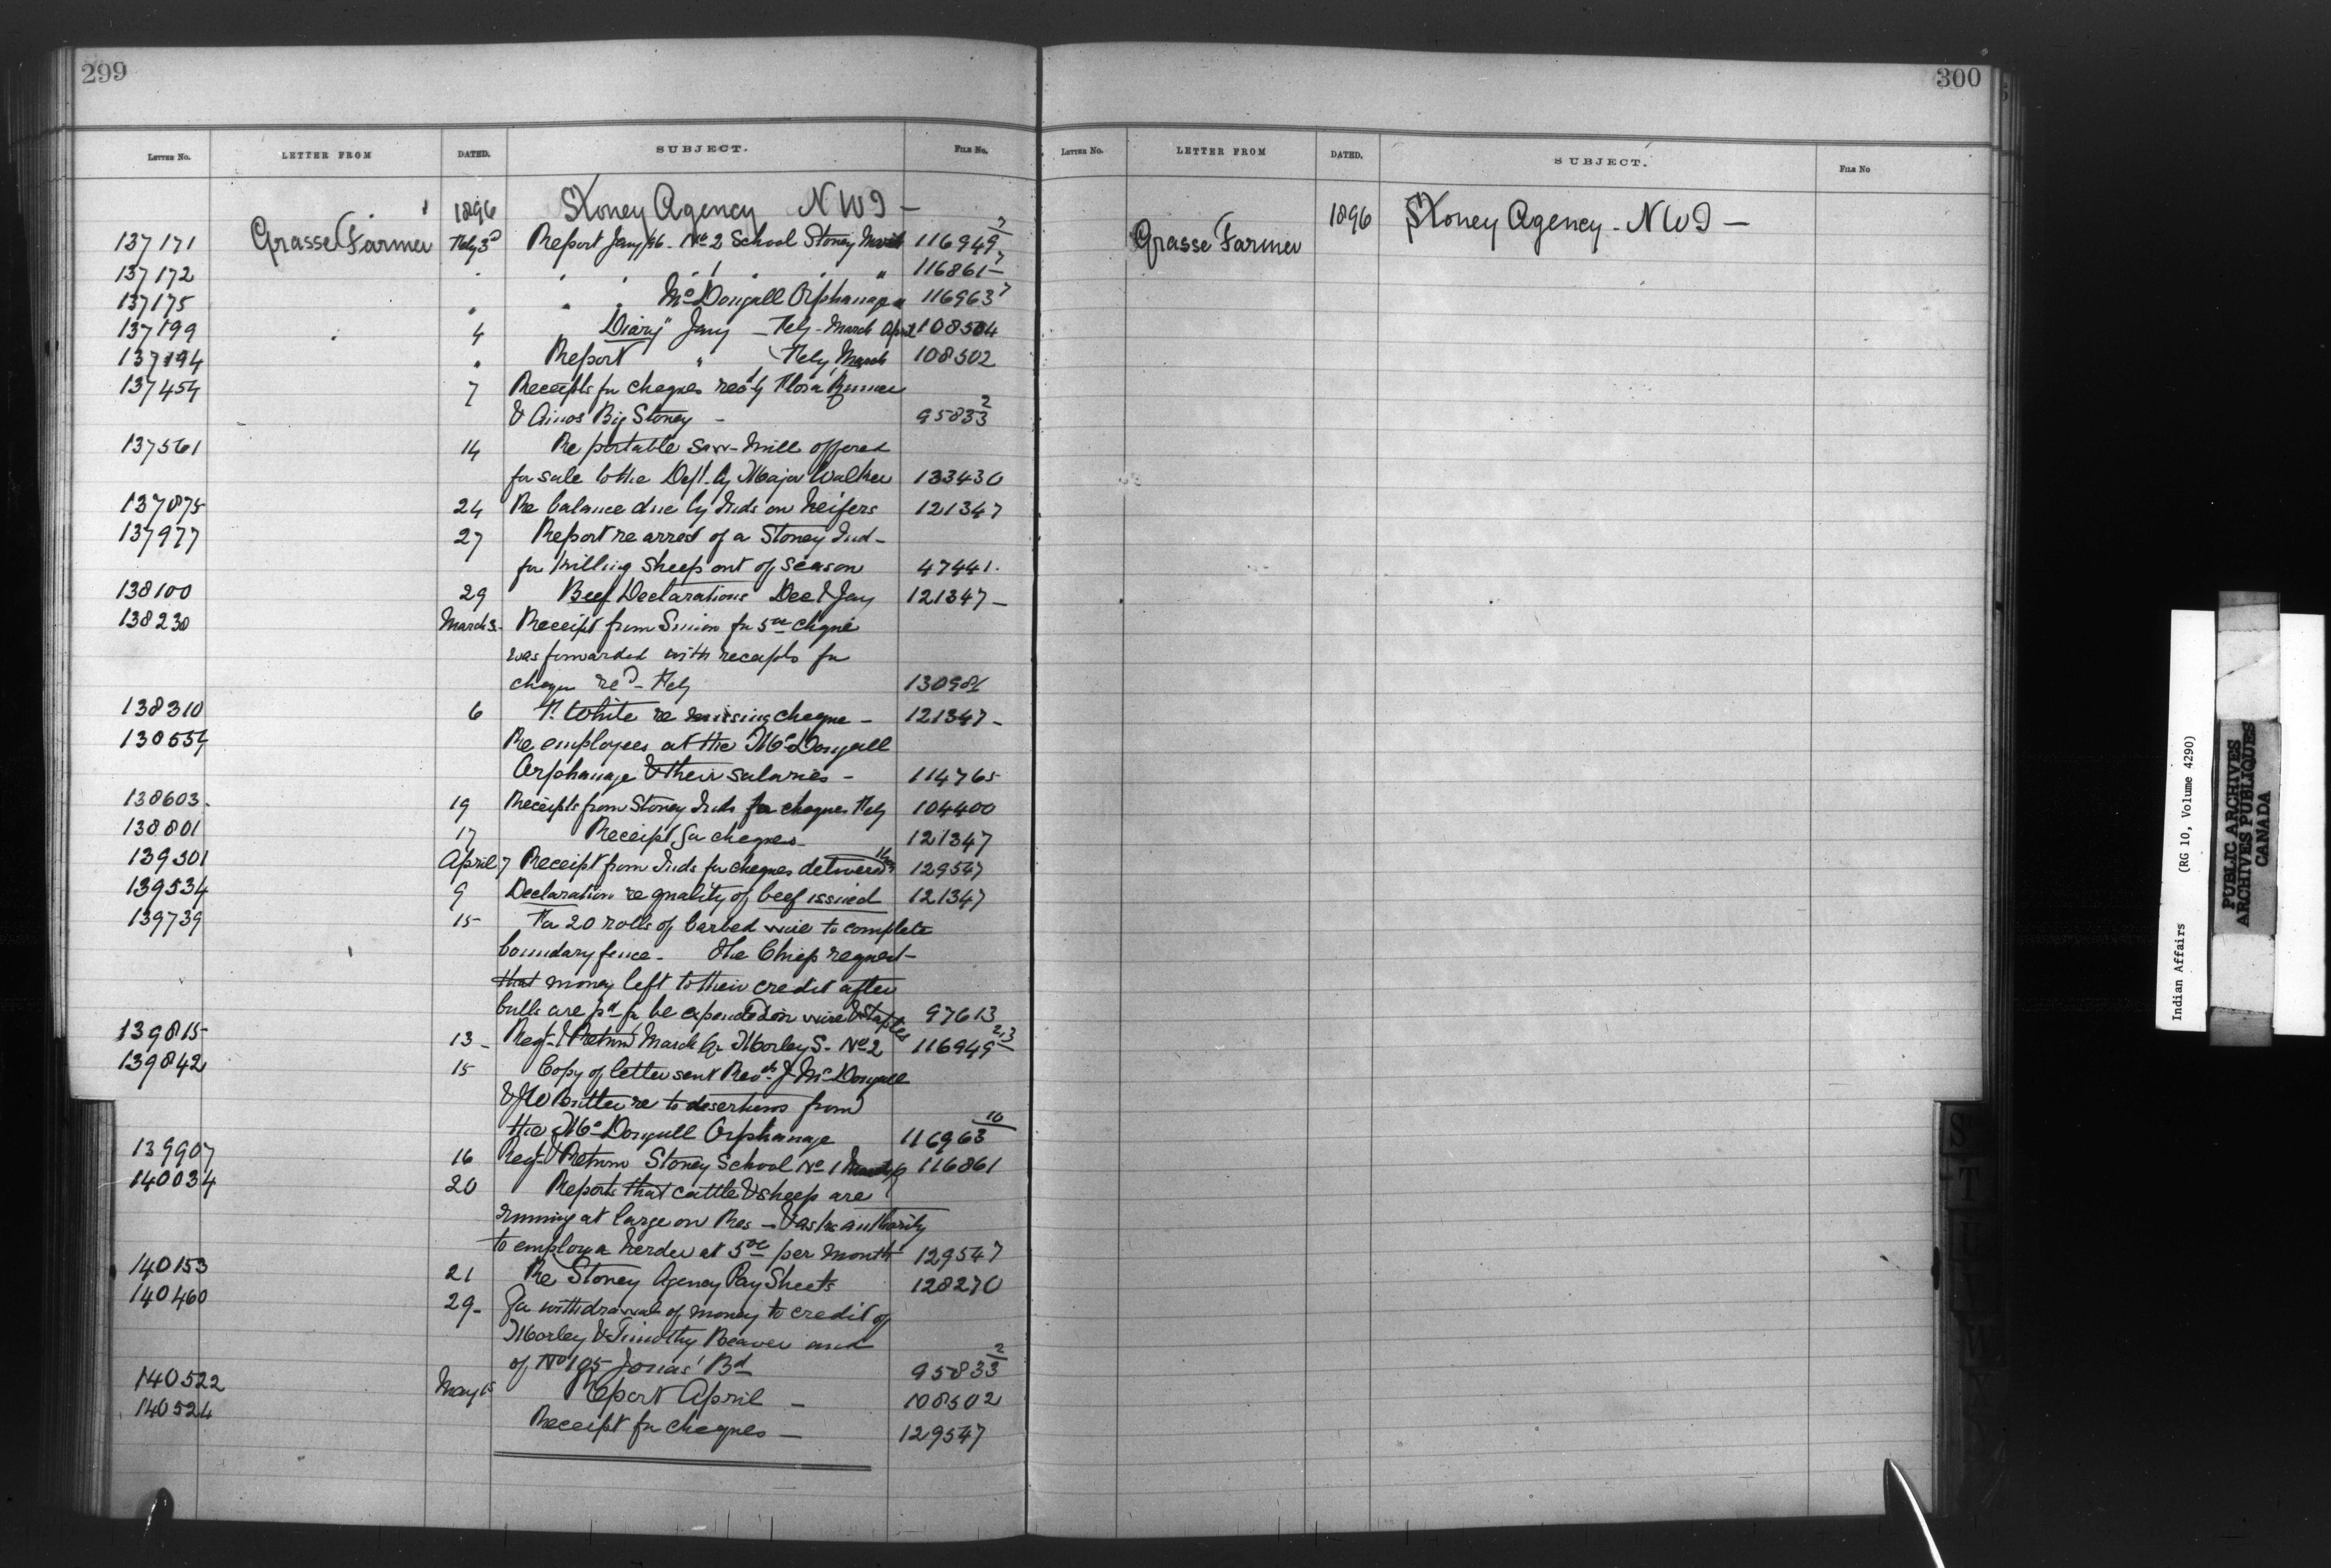 299
LETTER No. LETTER FROM DATED. SUBJECT. FILE No.
1896 Stoney Agency NWT —
137171 Grasse Farmer Feby 3d Report Jany/96 - No 2 School Stoney 116949 2
137172 " " " 1 " " " 116861 7
137175 " " " McDougall Orphanage 116963 7
137199 4 Diary Jany - Feby - March April 108504
137194 " Report " Feby March 108502
137454 7 Receipts for cheques rec'd by Flora
& Amos Big Stoney - 95833 2
137561 14 Re portable saw-mill offered
for sale to the Dept. by Major Walker 133430
137875 24 Re balance due by Inds on heifers 121347
137977 27 Report re arrest of a Stoney Ind-
for killing sheep out of season 47441.
138100 29 Beef Declarations Dec & Jany 121347 -
138230 March 3. Receipt from Simeon for 5 00 cheque
was forwarded with receipts for
cheques re'd - Feby
138310 6 F. White re missing cheque - 121347 -
Re employees at the McDougall
Orphanage & their salaries - 114765
138603. 19 Receipts from Stoney Inds for cheques Feby 104400
138801 17 Receipt for cheques - 121347
139301 April 7 Receipt from Inds for cheques delivered them 129547
139534 9 Declaration re quality of beef issued 121347
139739 15 For 20 rolls of barbed wire to complete
boundary fence - The Chiefs request -
that money left to their credit after
bulls are pd for be expended on wire & staples 97613
139815 13 - Regr & Return March Qr Morley S. No 2 116949 2,3
139842 15 Copy of letter sent Revds J McDougall
& JW Butler re to desertions from
the McDougall Orphanage 116963 10
139907 16 Regr & Return Stoney School No 1 March Qr 116861
140034 20 Reports that cattle & sheep are
running at large on Res - & asks authority
to employ a herder at 5 00 per month 129547
140153 21 Re Stoney Agency Pay Sheets 128270
140460 29 - For withdrawal of money to credit of
Morley & Timothy Beaver and
of No 195 Jonas' Bd 95833 2
140522 May Report April - 108502
140524 Receipt for cheques - 129547
300
LETTER No. LETTER FROM DATED. SUBJECT. FILE No
Grasse Farmer 1896 Stoney Agency - NWT —
S
T
U
V
W
Indian Affairs (RG 10, Volume 4290)
PUBLIC ARCHIVES
ARCHIVES PUBLIQUES
CANADA